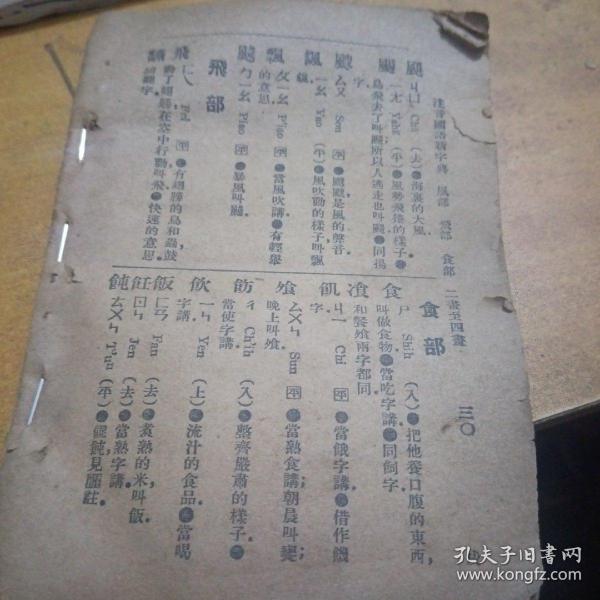 注音國語新字典 風部 飛部 食部 二畫至四畫 三〇
颶 ㄐㄩ Chü (去)●海裏的大風。
颺 ㄧㄤ Yang (平)●風勢飛捲的樣子。●同揚字。
鳥飛去了叫颺所以人逃走也叫颺。
颼 ㄙㄡ Sou 平 ●颼颼是風的聲音。
颻 ㄧㄠ Yao (平)●風吹動的樣子叫飄颻。
飄 ㄆㄧㄠ P'iao 平 ●當風吹講。●有輕舉的意思。
飈 ㄅㄧㄠ Piao 平 ●暴風叫飈。
飛部
飛 ㄈㄟ Fei 平 ●有翅膀的鳥和蟲鼓動了翅膀在空中行動叫飛。●快速的意思。
食部
食 ㄕ Shih (入)●把他養口腹的東西,叫做食物。●當吃字講。●同飼字
飡 和餐飧兩字都同。
飢 ㄐㄧ Chi 平 ●當餓字講。●借作饑字。
飧 ㄙㄨㄣ Sun 平 ●當熟食講;朝晨叫饔;晚上叫飧。
飭 ㄔ Ch'ih (入)●整齊嚴肅的樣子。●當使字講
飲 ㄧㄣ Yen (上)●流汁的食品。●當喝字講。
飯 ㄈㄢ Fan (去)●煮熟的米叫飯。
飪 ㄖㄣ Jen (去)●當熟字講。
飩 ㄊㄨㄣ T'un (平)●餛飩見餛註。
孔夫子旧书网
www.kongfz.com